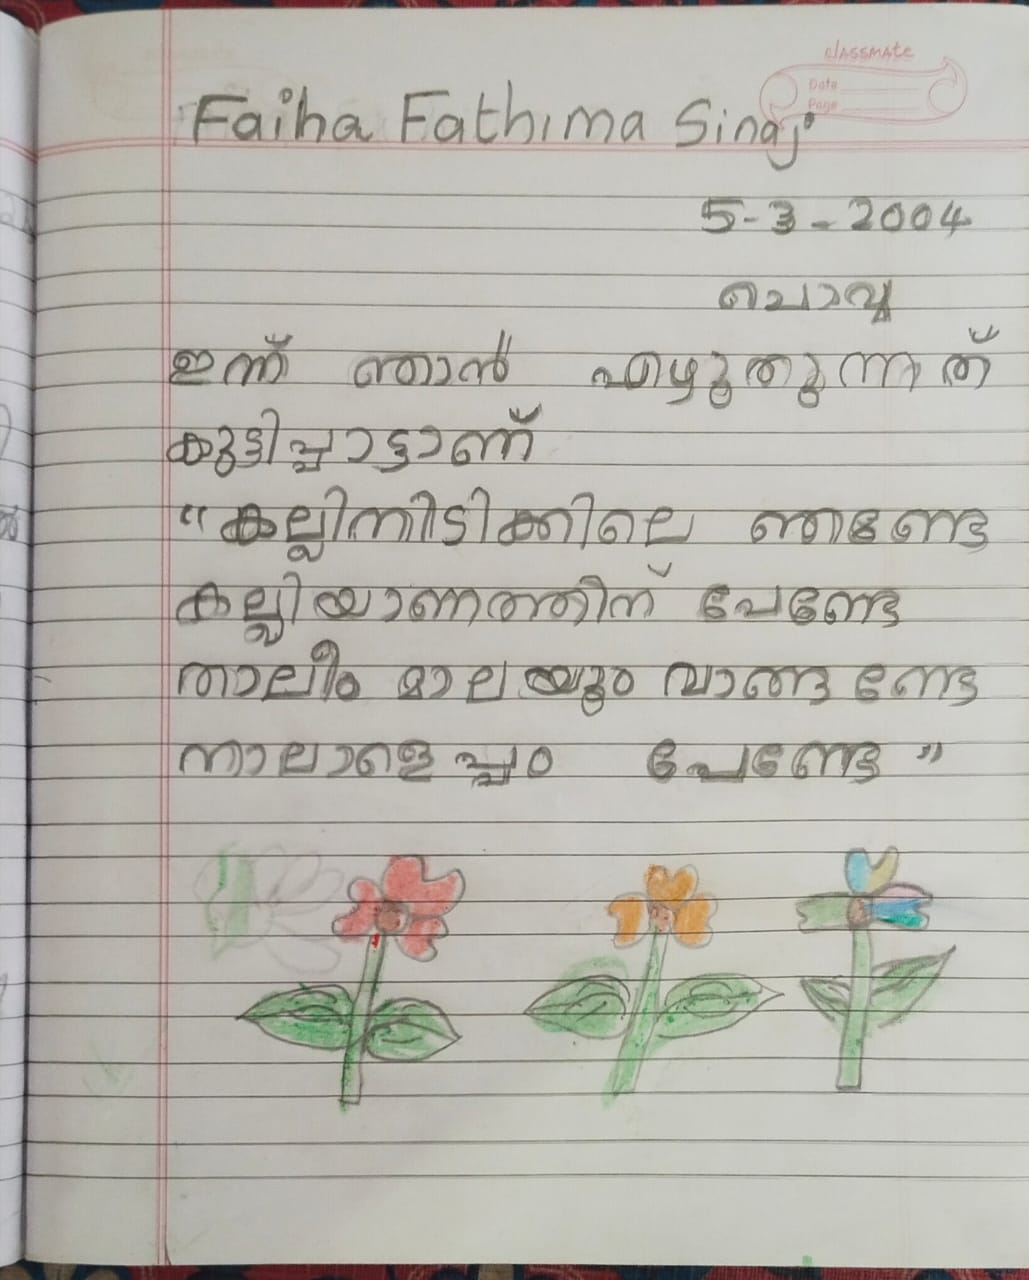 classmate
Date
Page
Faiha Fathima Siraj
5-3-2004
ചൊവ്വ
ഇന്ന് ഞാൻ എഴുതുന്നത്
കുട്ടിപ്പാട്ടാണ്
“കല്ലിനിടിക്കിലെ ഞണ്ടേ
കല്ലിയാണത്തിന് പേണ്ടേ
താലീം മാലയും വാങ്ങണ്ടേ
നാലാളെപ്പം പേണ്ടേ”